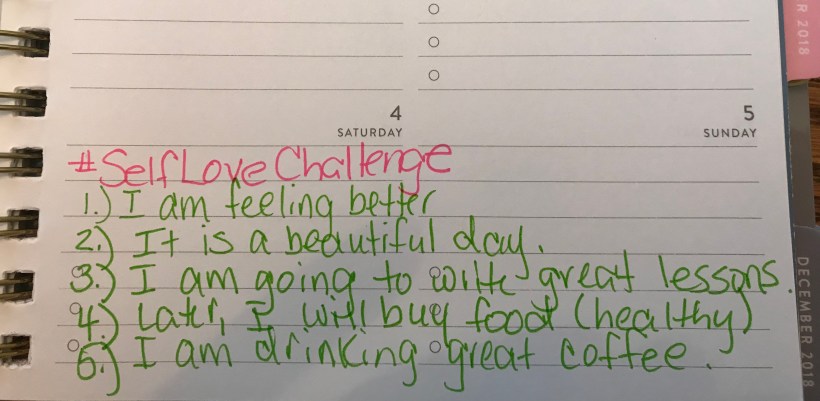 4 5
SATURDAY SUNDAY
#SelfLoveChallenge
1.) I am feeling better
2.) It is a beautiful day.
3.) I am going to write great lessons.
4.) Later, I will buy food (healthy)
5.) I am drinking great coffee.
R 2018
DECEMBER 2018